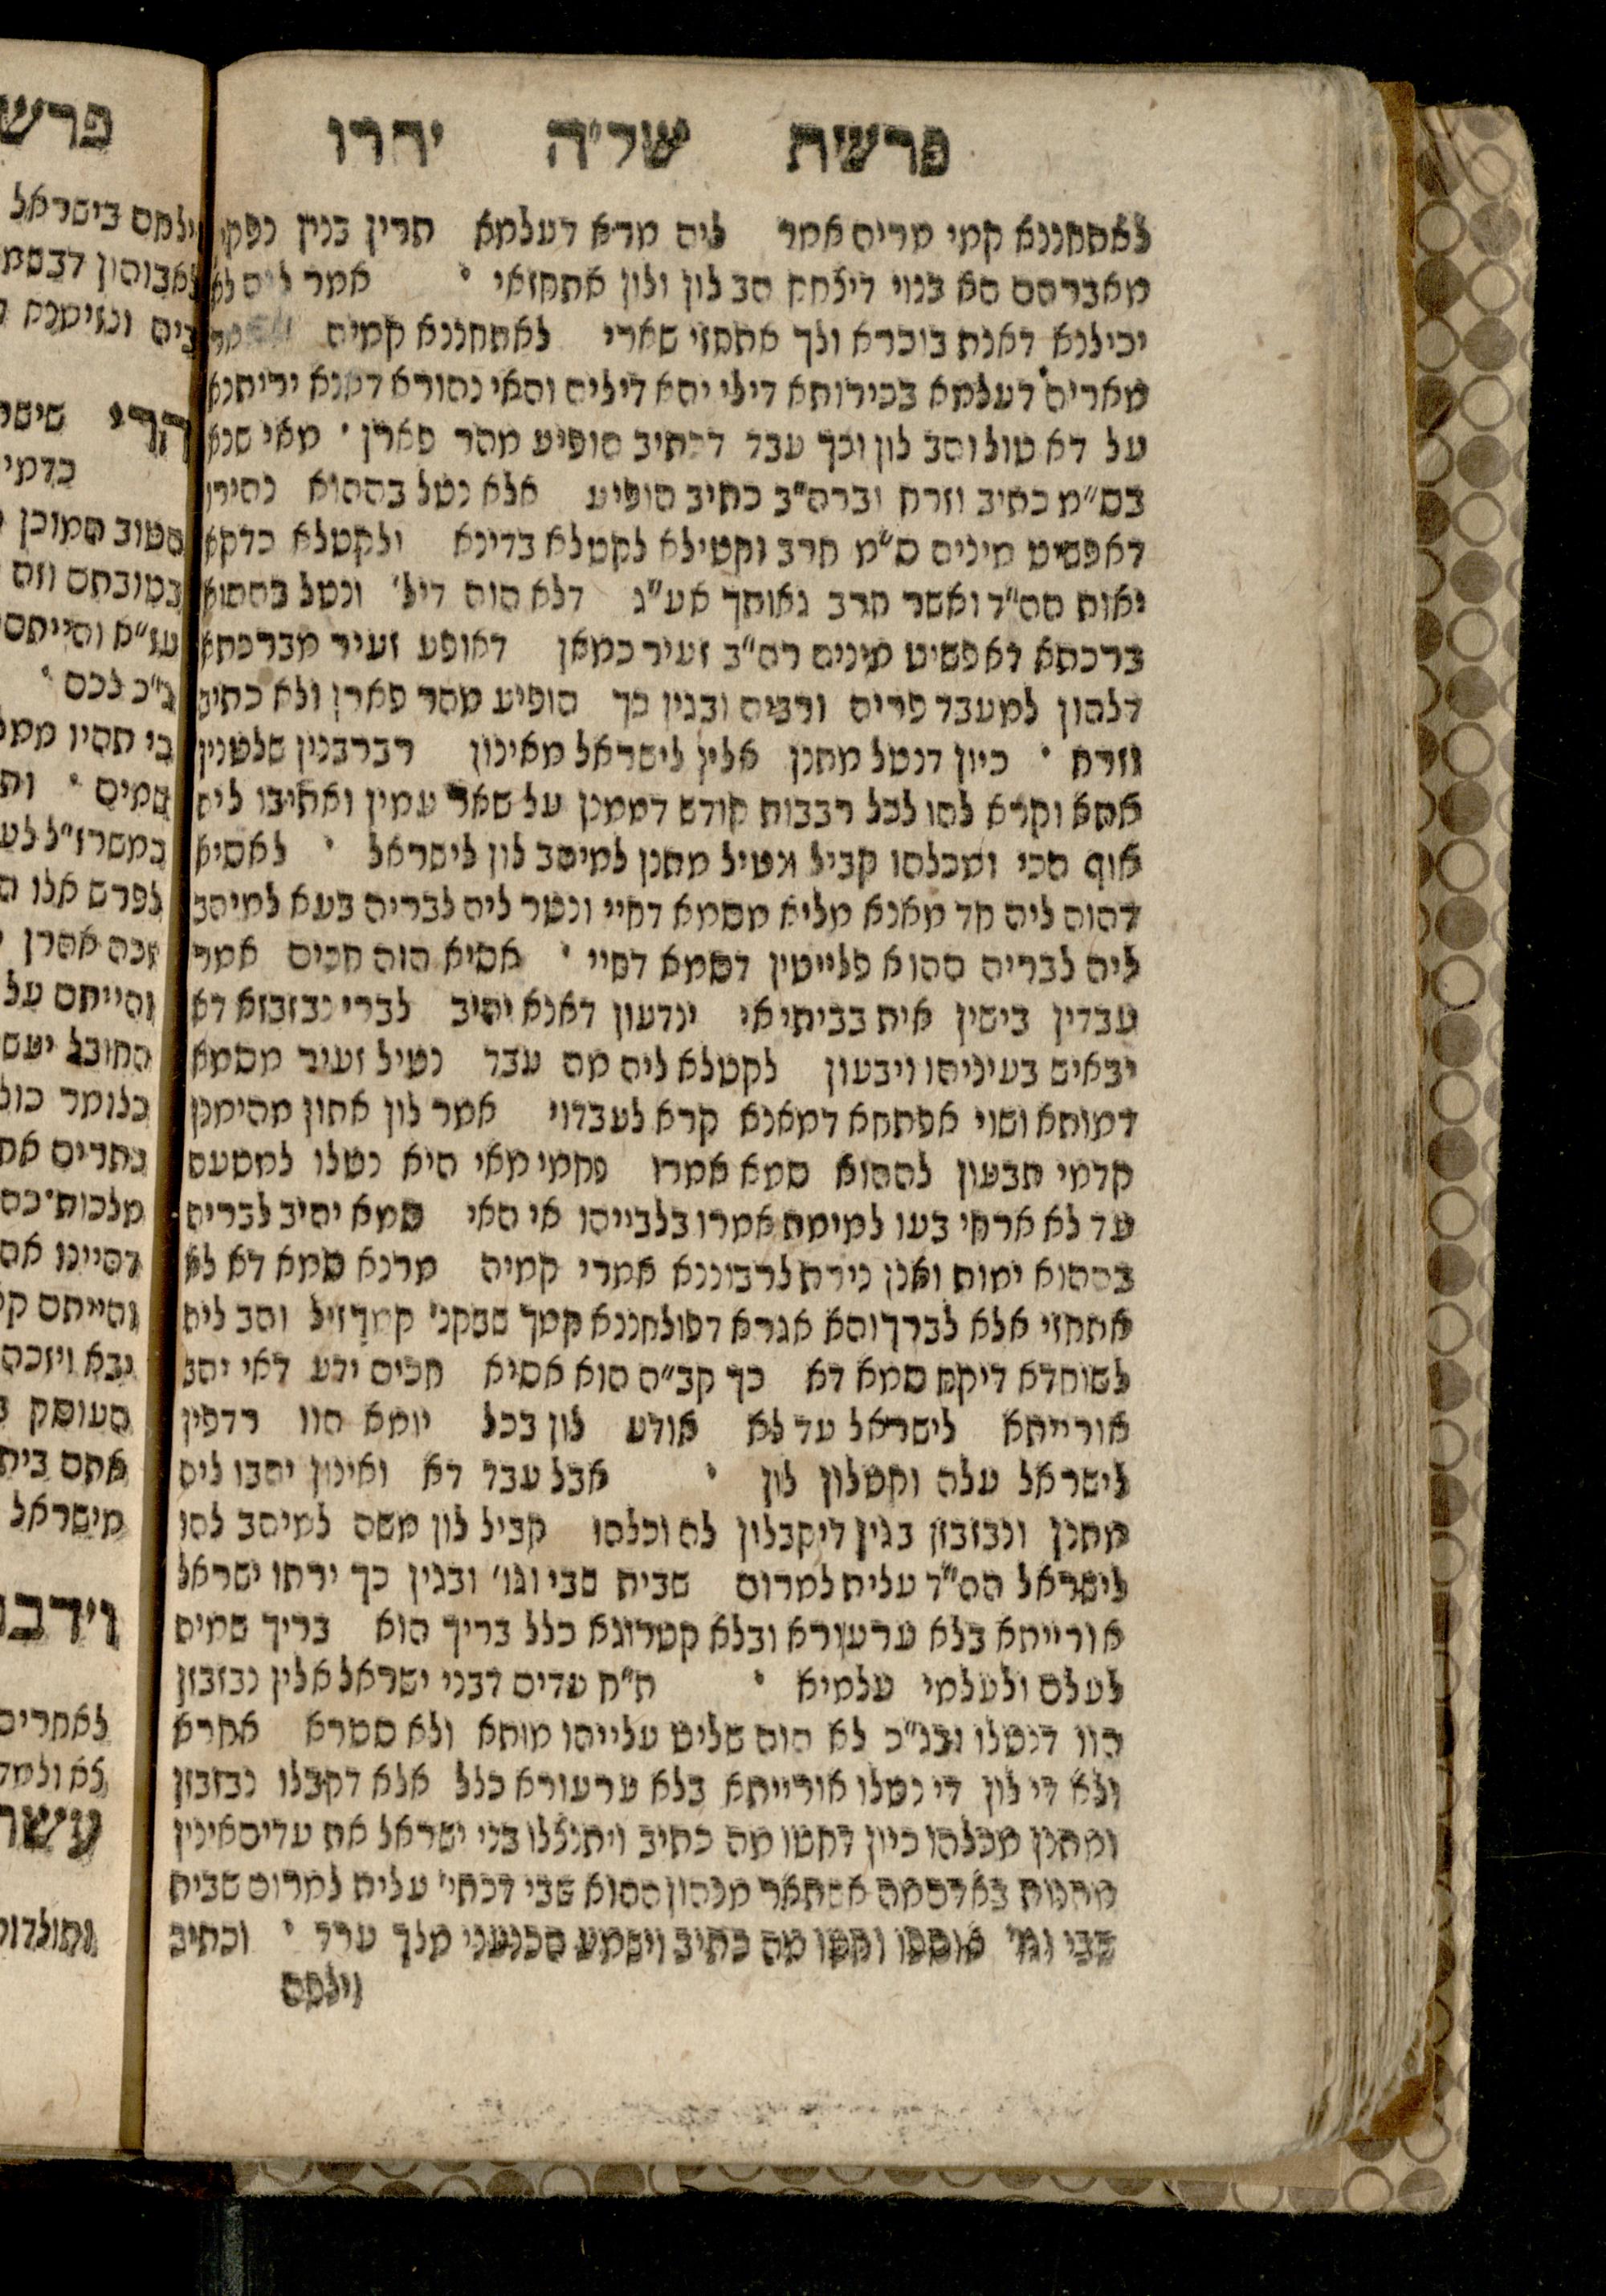 פרשת של״ה יתרו
לאתחננא קמי מריה אמר ליה מרא דעלמא תרין בנין נפקו
מאברהם הא בנוי דיצחק הב לון ולון אתחזאי • אמר ליה לא
יכילנא דאנת בוכרא ולך אתחזי שארי לאתחננא קמיה אמר
מאריה דעלמא בכירותא דילי יהא דיליה והאי נהורא דאנא ירתנא
על דא טול והב לון וכך עבד דכתיב הופיע מהר פארן • מאי שנא
בס״מ כתיב וזרח וברה״ב כתיב הופיע אלא נטל בההוא נהירו
דאפשיט מיניה ס״מ חרב וקטילא לקטלא בדינא ולקטלא כדקא
יאות הה״ד ואשר חרב גאותך אע״ג דלא הוה דיל׳ ונטל בההוא
ברכתא דאפשיט מיניה רה״ב זעיר כמאן דאופע זעיר מברכתא
דלהון למעבד פריה ורביה ובגין כך הופיע מהר פארן ולא כתיב
וזרח • כיון דנטל מתנן אלין לישראל מאינון רברבנין שלטנין
אתא וקרא להו לכל רבבות קודש דממנן על שאר עמין ואתיבו ליה
אוף הכי ומכלהו קביל ונטיל מתנן למיהב לון לישראל • לאסיא
דהוה ליה חד מאנא מליא מסמא דחיי ונטר ליה לבריה בעא למיהב
ליה לבריה ההוא פלייטין דסמא דחיי • אסיא הוה חכים אמר
עבדין בישין אית בביתי אי ינדעון דאנא יהיב לברי נבזבזא דא
יבאיש בעיניהו ויבעון לקטלא ליה מה עבד נטיל זעיר מסמא
דמותא ושוי אפתחא דמאנא קרא לעבדוי אמר לון אתון מהימנן
קדמי תבעון לההוא סמא אמרו נחמי מאי היא נטלו למטעם
עד לא ארחי בעו למימת אמרו בלבייהו אי האי סמא יהיב לבריה
בההוא ימות ואנן נירת לרבוננא אמרי קמיה מרנא סמא דא לא
אתחזי אלא לברך והא אגרא דפולחננא קמך שבקנ׳ קמך זיל והב ליה
לשוחדא דיקח סמא דא כך קב״ה הוא אסיא חכים ידע דאי יהב
אורייתא לישראל עד לא אודע לון בכל יומא הוו רדפין
לישראל עלה וקטלון לון • אבל עבד דא ואינון יהבו ליה
מתנן ונבזבזן בגין דיקבלון לה וכלהו קביל לון משה למיהב להו
לישראל הה״ד עלית למרום שבית שבי וגו׳ ובגין כך ירתו ישראל
אורייתא בלא ערעורא ובלא קטרוגא כלל בריך הוא בריך שמיה
לעלם ולעלמי עלמיא • ת״ח עדים דבני ישראל אלין נבזבזן
הוו דנטלו ובג״כ לא הוה שליט עלייהו מותא ולא סטרא אחרא
ולא די לון די נטלו אורייתא בלא ערעורא כלל אלא דקבלו נבזבזן
ומתנן מכלהו כיון דחטו מה כתיב ויתנצלו בני ישראל את עדים אינין
מתנות באדם מה אשתאר מנהון ההוא שבי דכתי׳ עלית למרום שבית
שבי וגו׳ וחטו מה כתיב וישמע הכנעני מלך ערד • וכתיב
וילחם